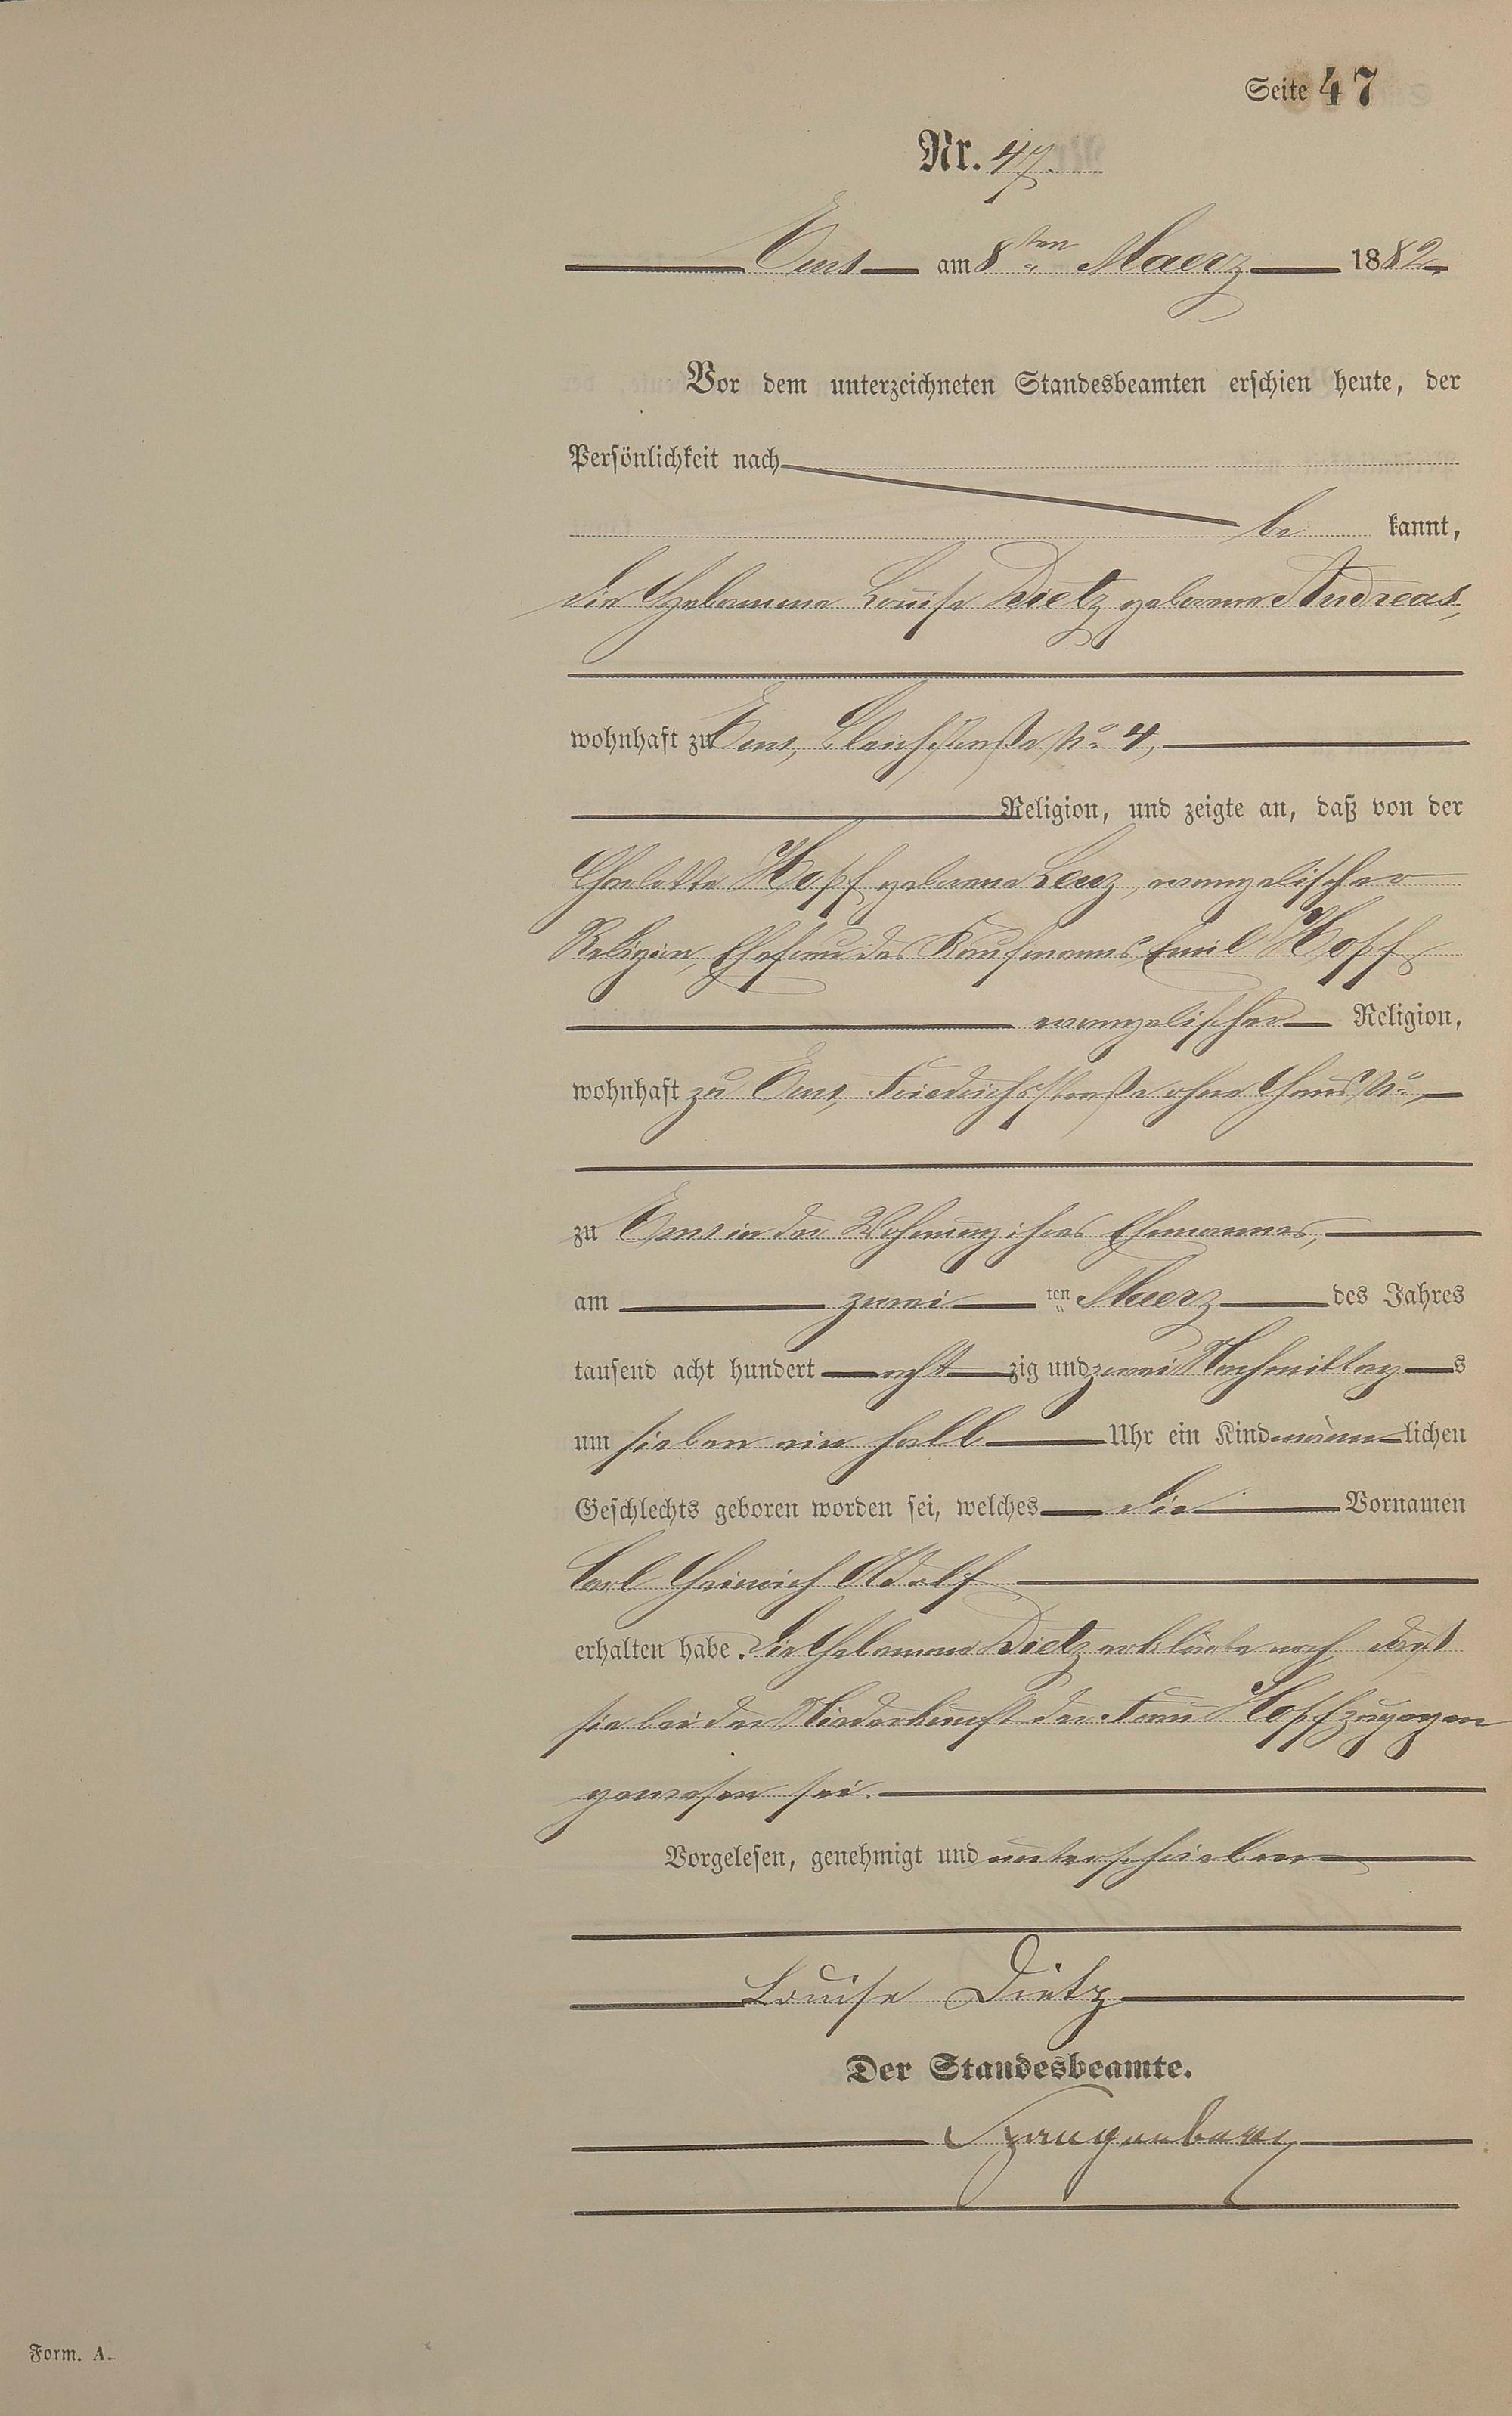 Seite 47
Nr. 47.
Ems am 8ten Maerz 1882.
Vor dem unterzeichneten Standesbeamten erschien heute, der
Persönlichkeit nach
be kannt,
die Hebamme Louise Dietz geborene Andreas,
wohnhaft zu Ems, Bleichstraße No 4,
Religion, und zeigte an, daß von der
Charlotte Hopf geborene Lenz, evangelischer
Religion, Ehefrau des Kaufmanns Emil Hopf
evangelischer Religion,
wohnhaft zu Ems, Friedrichsstraße ohne Haus No,
zu Ems in der Wohnung ihres Ehemannes,
am zwei ten Maerz des Jahres
tausend acht hundert acht zig und zwei Nachmittag s
um sieben ein halb Uhr ein Kind männ lichen
Geschlechts geboren worden sei, welches die Vornamen
Carl Heinrich Adolf
erhalten habe. Die Hebamme Dietz erklärte noch, daß
sie bei der Niederkunft der Frau Hopf zugegen
gewesen sei.
Vorgelesen, genehmigt und unterschrieben
Louise Dietz
Der Standesbeamte.
Form. A.